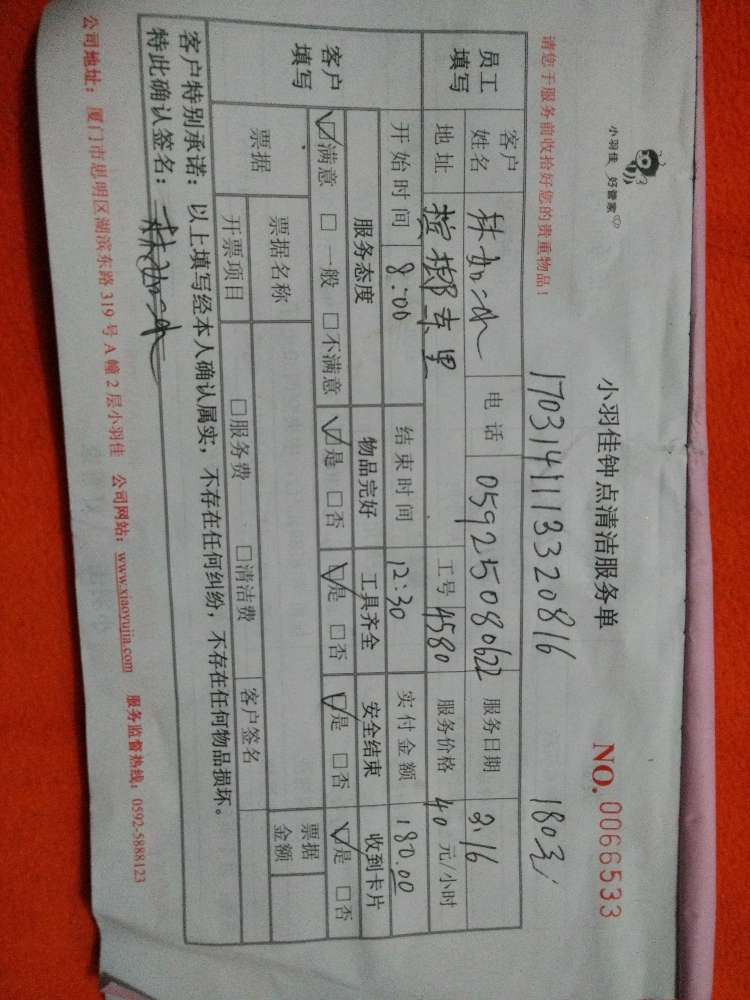 小羽佳 好管家
小羽佳钟点清洁服务单
NO. 0066533
请您于服务前收拾好您的贵重物品！
1703141113320816
180元
员工填写 客户姓名 电话 05925080622 服务日期 2.16
地址 槟榔东里 工号 4580 服务价格 40 元/小时
开始时间 8:00 结束时间 12:30 实付金额 180.00
客户填写 服务态度 物品完好 工具齐全 安全结束 收到卡片
☑满意 □一般 □不满意 ☑是 □否 ☑是 □否 ☑是 □否 ☑是 □否
票据 票据名称 票据金额
开票项目 □服务费 □清洁费 客户签名
客户特别承诺：以上填写经本人确认属实，不存在任何纠纷，不存在任何物品损坏。
特此确认签名：
公司地址：厦门市思明区湖滨东路319号A幢2层小羽佳 公司网站：www.xiaoyujia.com 服务监督热线：0592-5888123